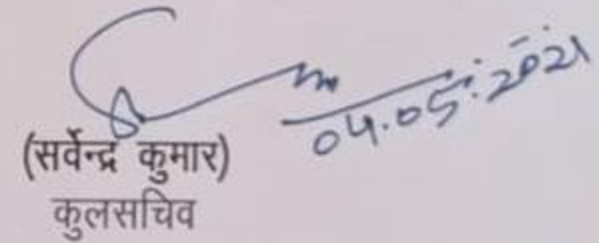 04.05.2021
(सर्वेन्द्र कुमार)
कुलसचिव